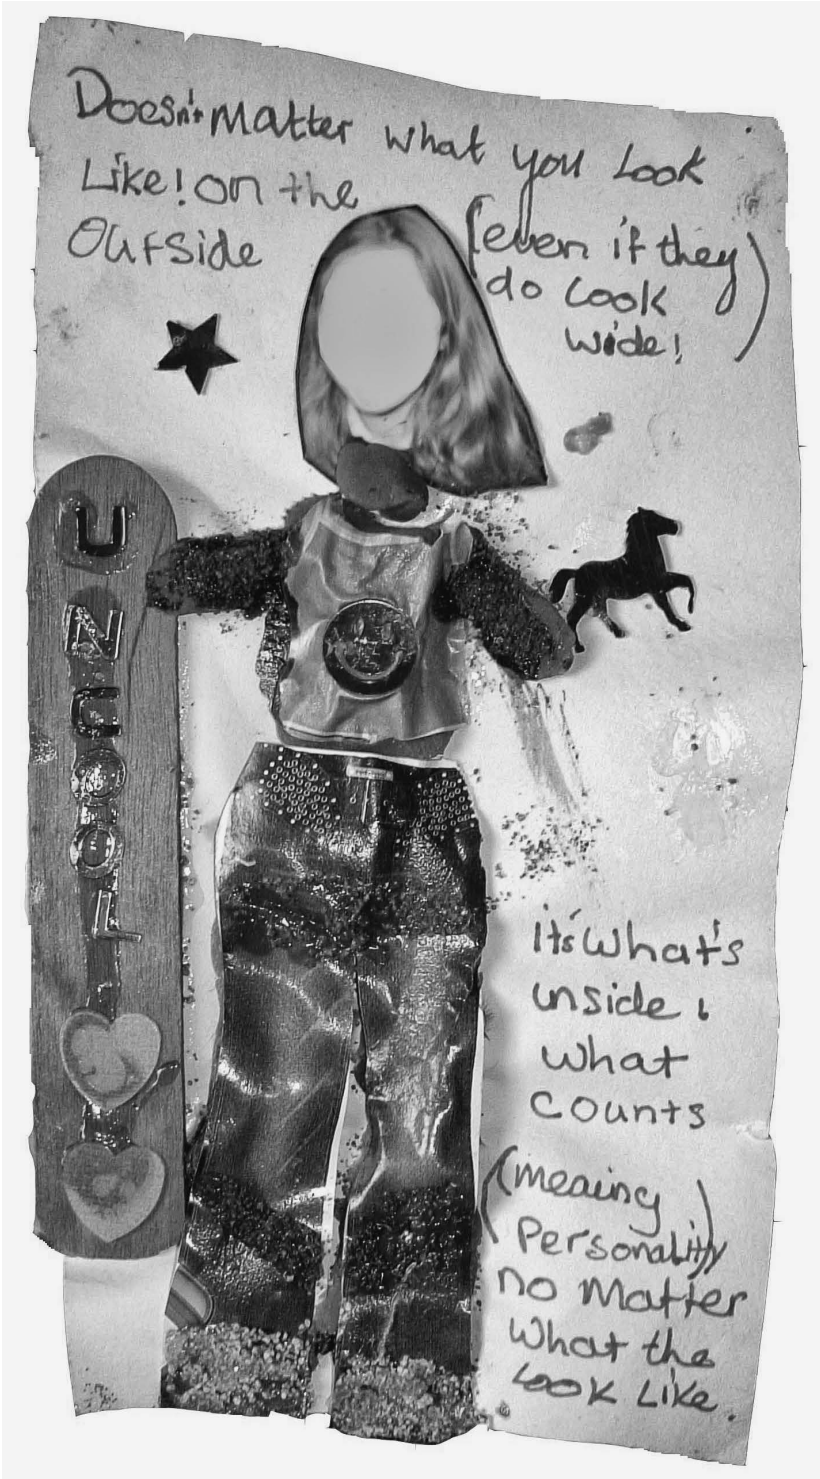 Doesn't Matter what you Look
Like! on the
Outside
(even if they
do look
wide!)
U
N
C
O
O
L
its what's
inside
what
counts
(meaing
Personality)
no Matter
What the
Look Like.